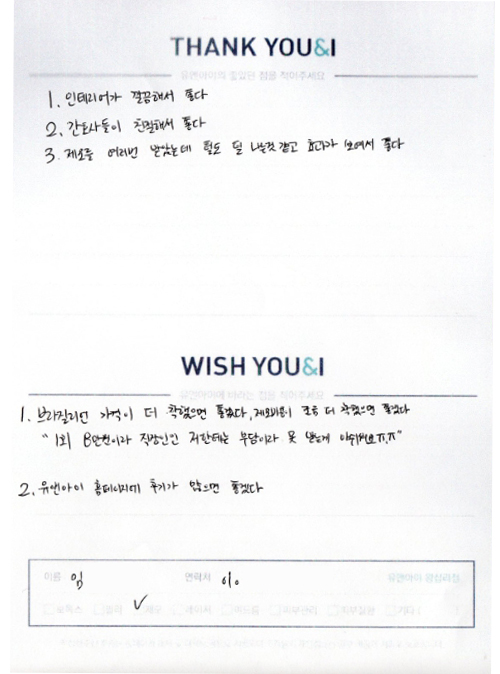 THANK YOU&I
유앤아이의 좋았던 점을 적어주세요
1. 인테리어가 깔끔해서 좋다
2. 간호사들이 친절해서 좋다
3. 제모를 여러번 받았는데 털도 덜 나는것 같고 효과가 보여서 좋다
WISH YOU&I
유앤아이에 바라는 점을 적어주세요
1. 브라질리언 가격이 더 착했으면 좋겠다, 제모비용이 조금 더 착했으면 좋겠다
" 1회 8만원이라 직장인인 저한테는 부담이라 못 받는게 아쉬워요ㅠ.ㅠ"
2. 유앤아이 홈페이지에 후기가 많으면 좋겠다
이름 임 연락처 010 유앤아이
보톡스 필러 제모 레이저 여드름 피부관리 기타 (